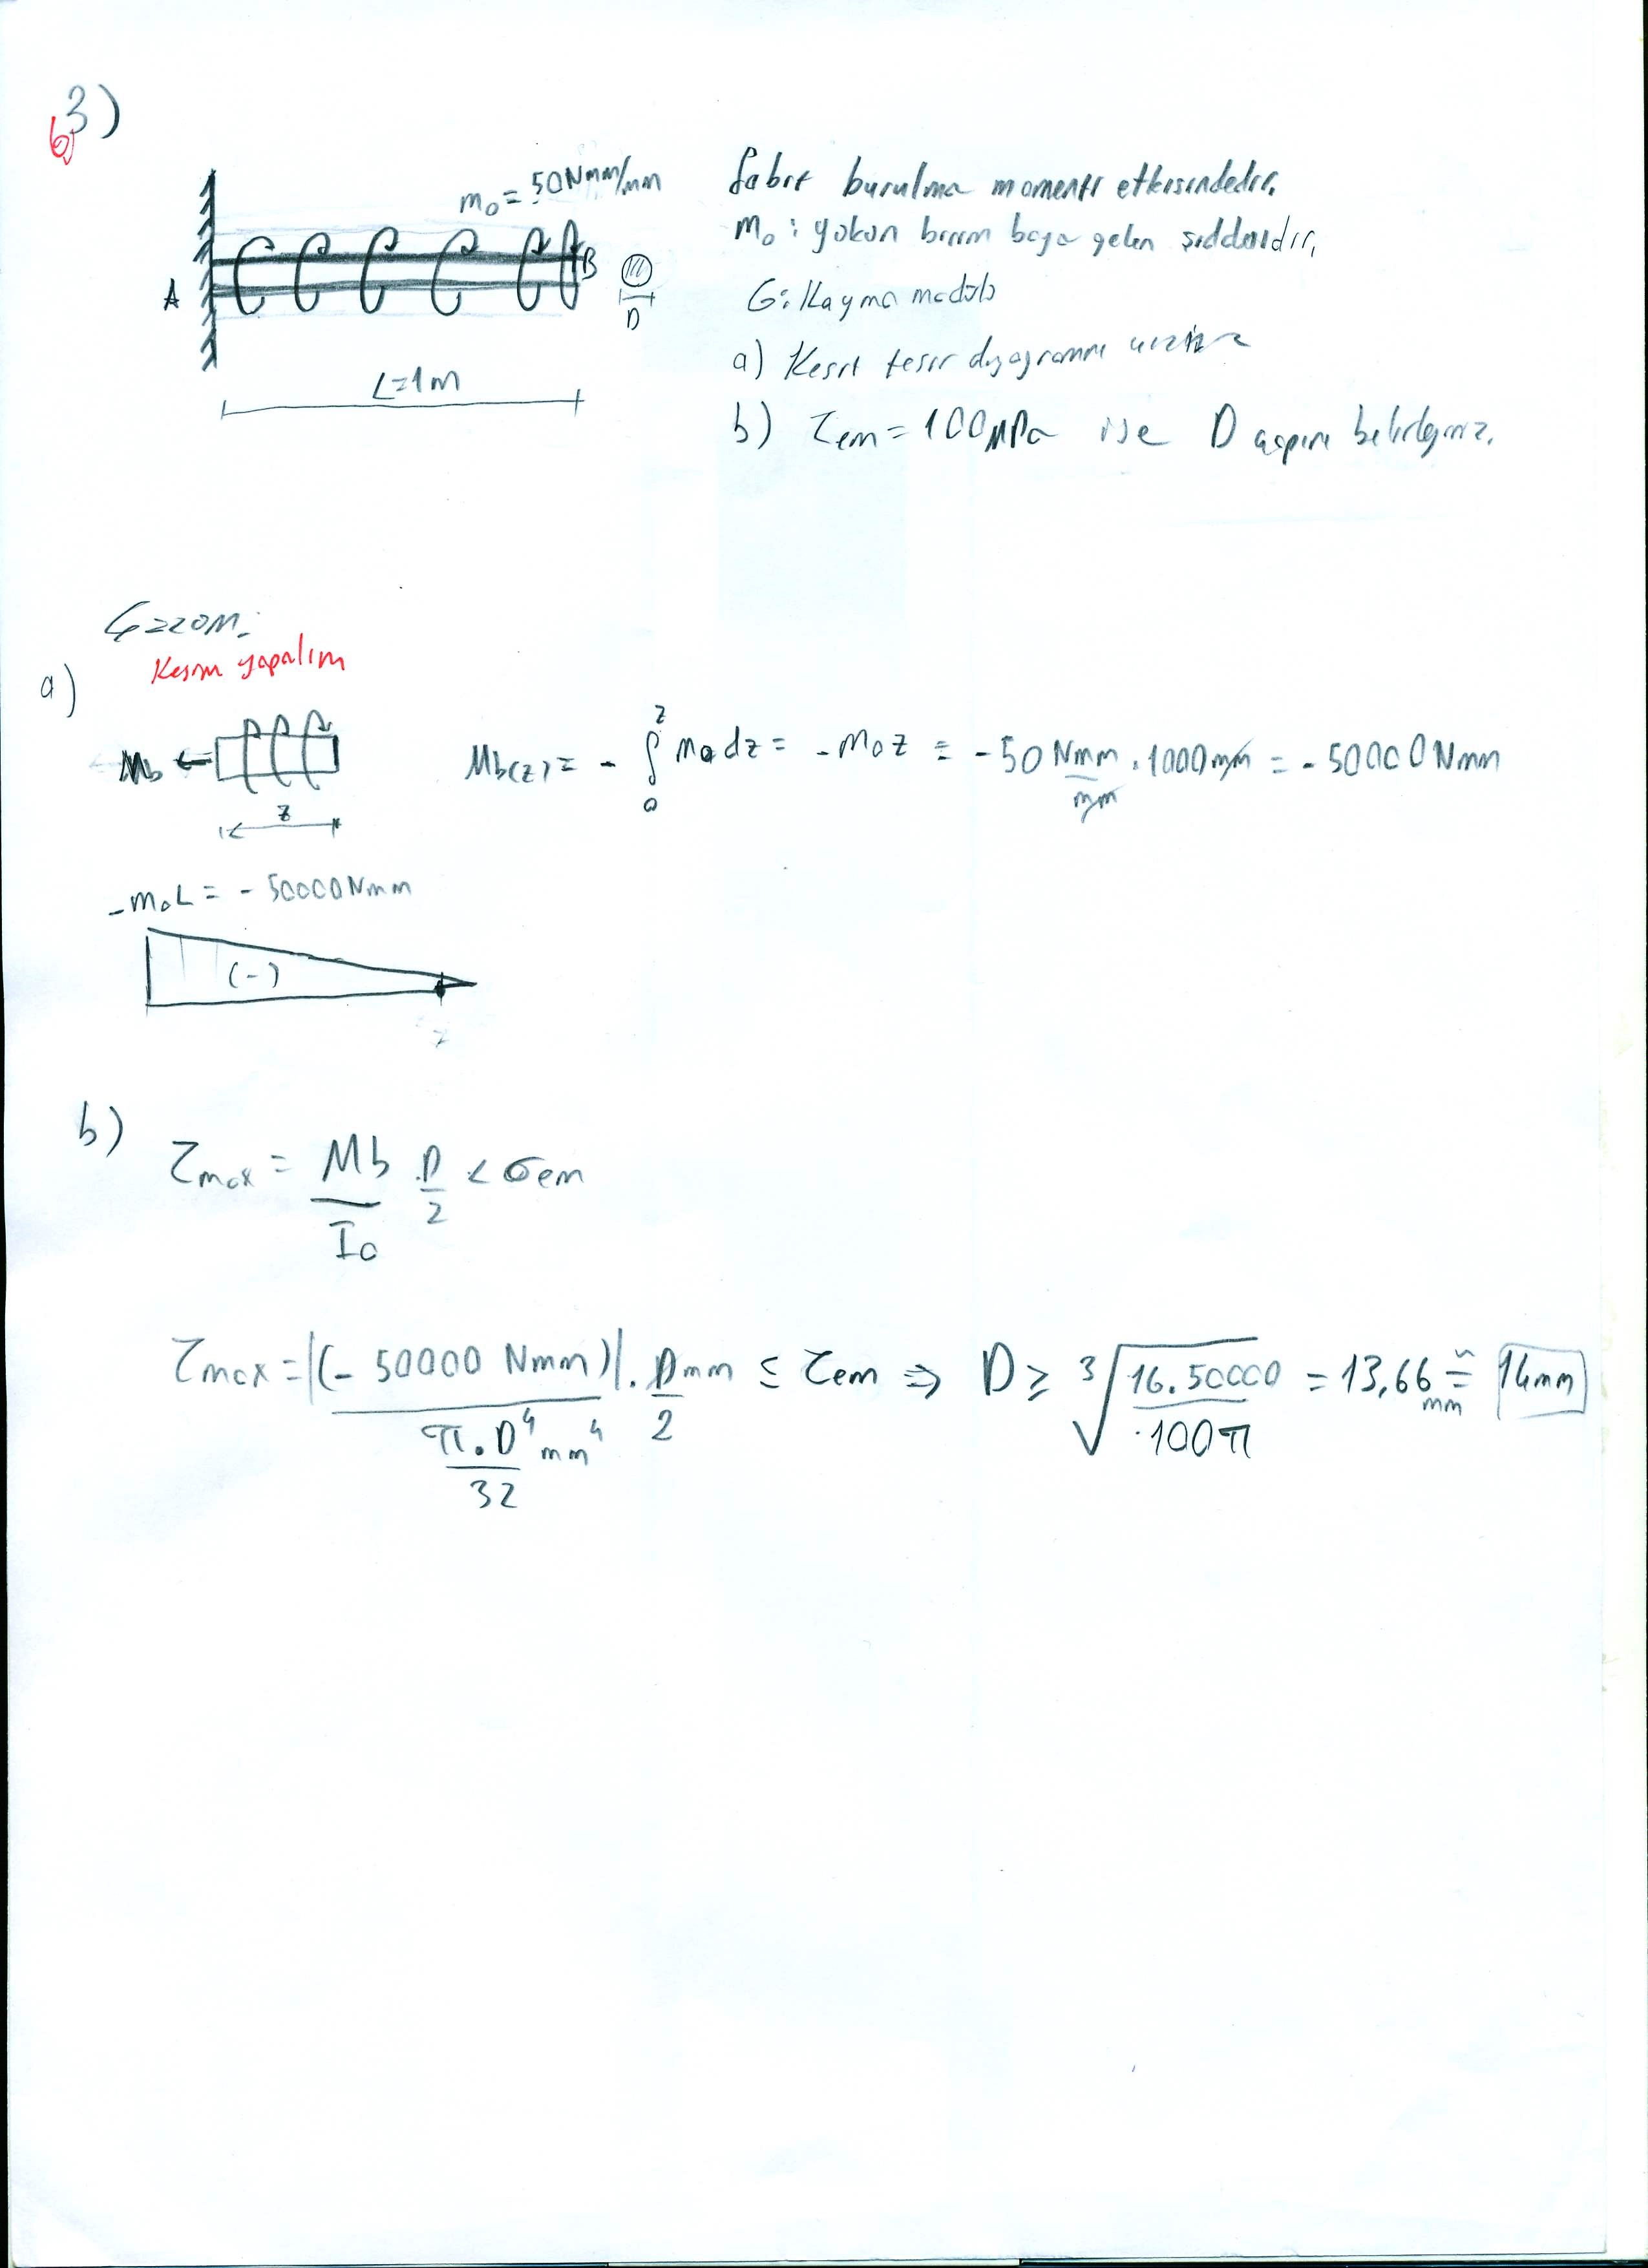 3)
6)
m₀ = 50 Nmm/mm
A
B
D
L=1m
Sabit burulma momenti etkisindedir.
m₀ : yükün birim boya gelen şiddetidir,
G: Kayma modülü
a) Kesit tesir diyagramını çiziniz
b) τem = 100 MPa ise D çapını belirleyiniz.
Çözüm:
Kesim yapalım
a)
Mb
z
Mb(z) = - ∫₀ᶻ m₀ dz = - m₀ z = - 50 Nmm/mm . 1000 mm = - 50000 Nmm
- m₀L = - 50000 Nmm
(-)
b)
τmax = Mb/I₀ . D/2 < σem
τmax = |(- 50000 Nmm)| / (π.D⁴/32 mm⁴) . D/2 mm ≤ τem ⇒ D ≥ ³√(16.50000 / .100π) = 13,66 mm ≅ 14mm